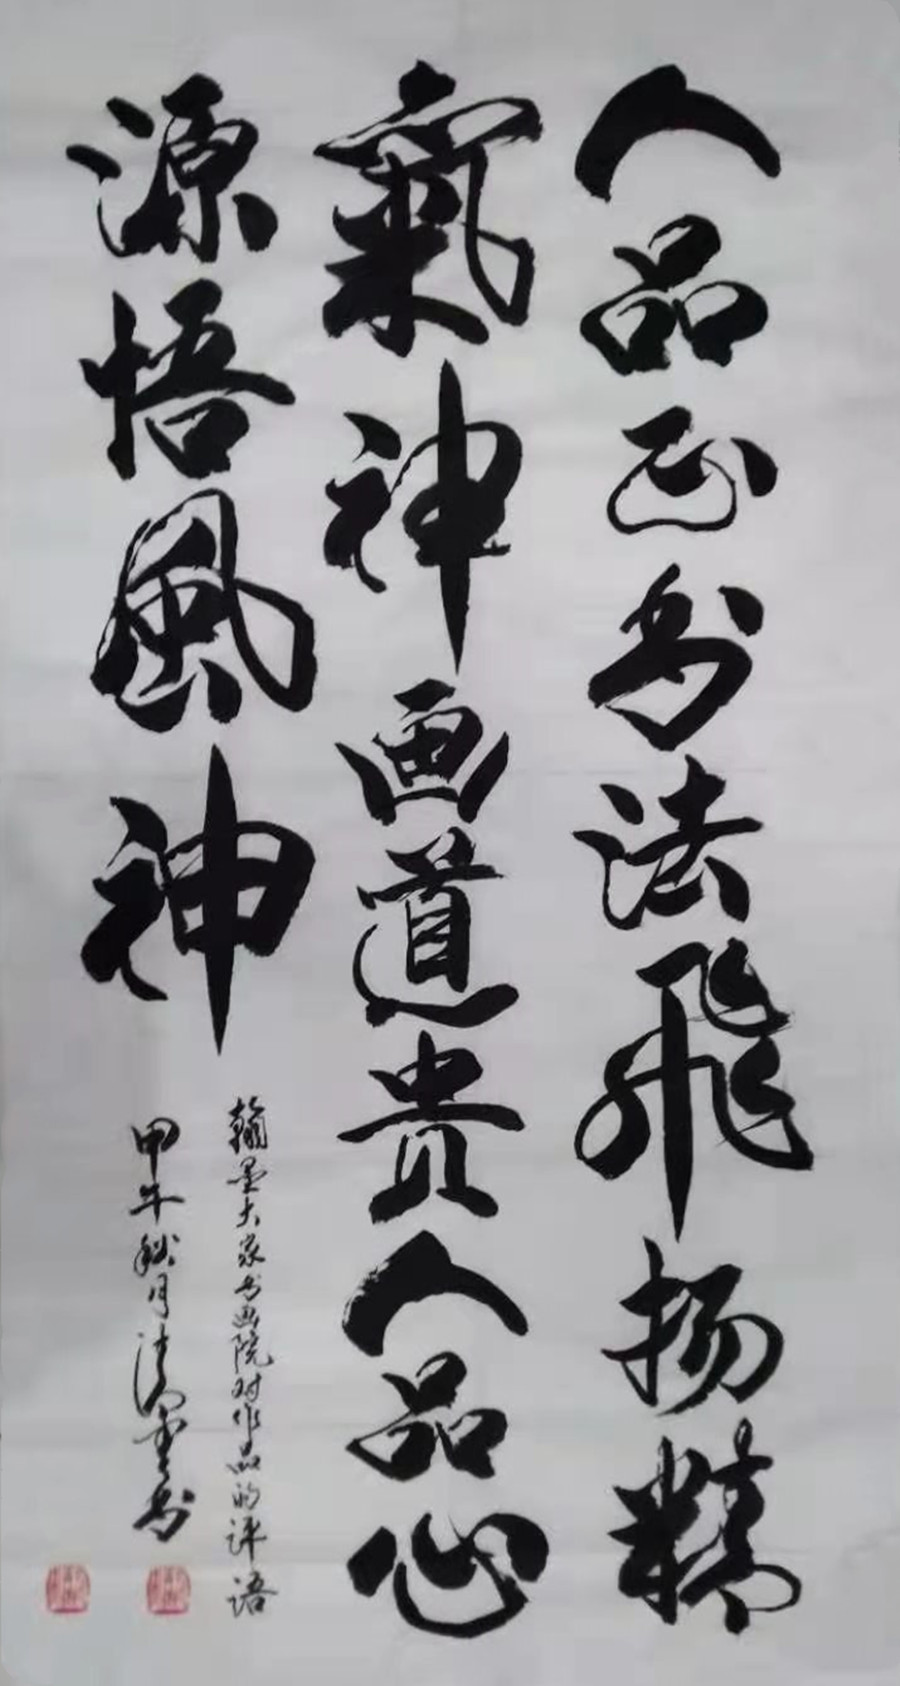 人品正书法飞扬精
氣神画道贵人品心
源悟風神
翰墨大家书画院对作品的评语
甲午秋月清墨书